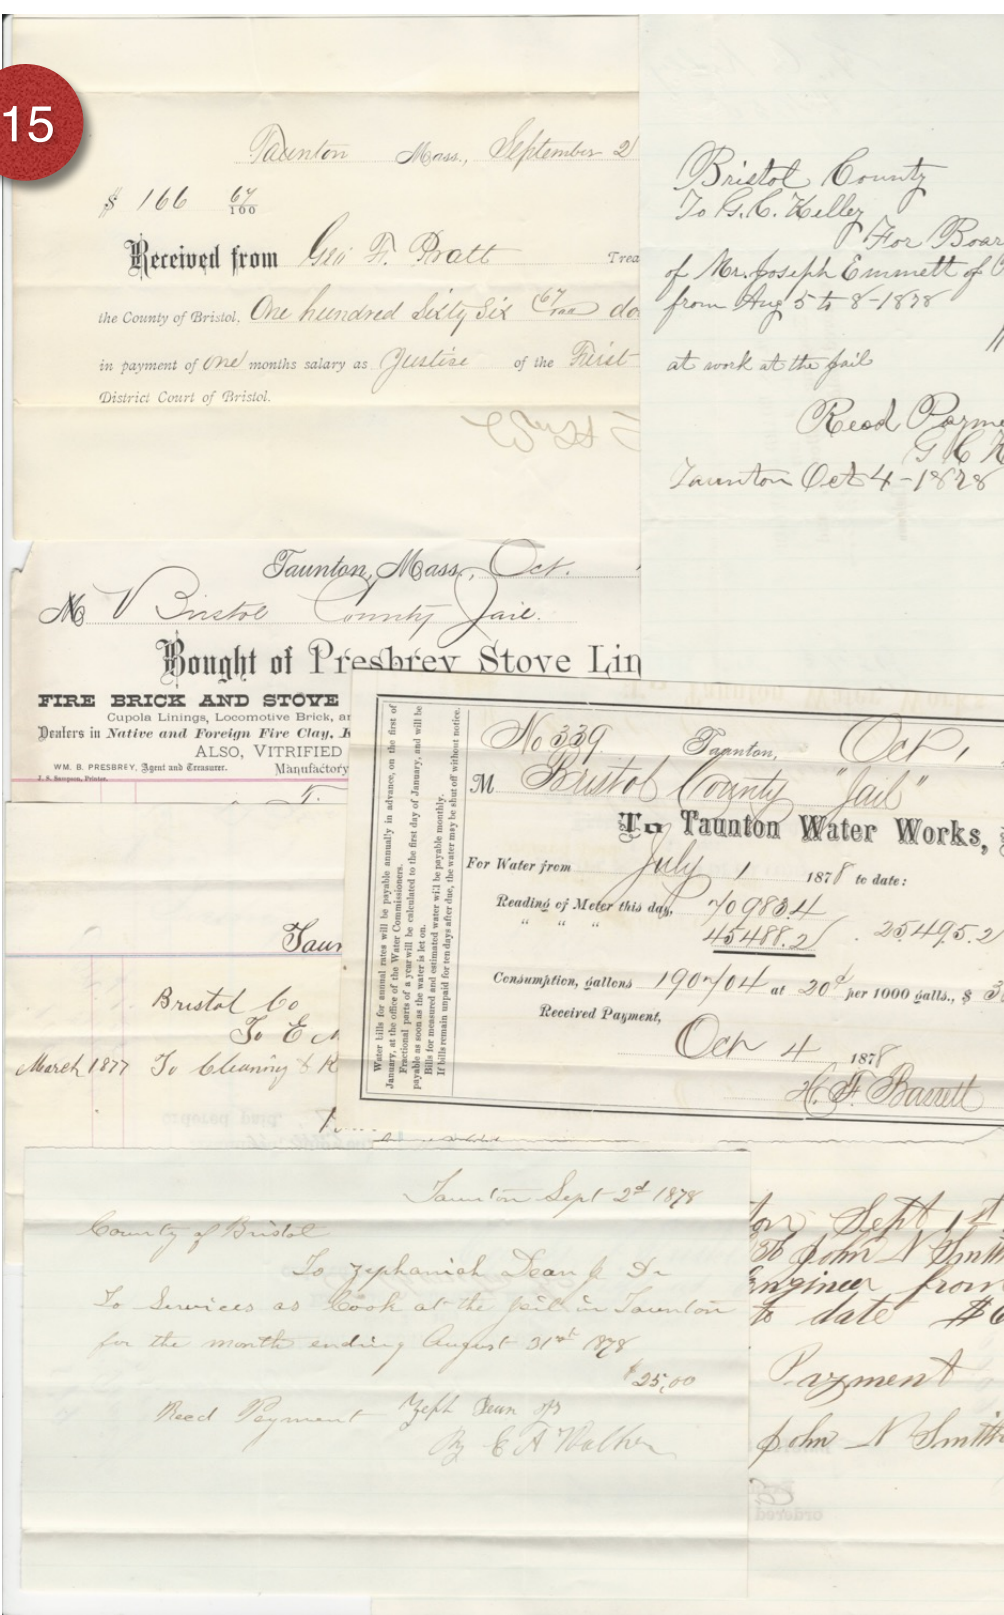 15
Taunton Mass., September 2
$ 166 67/100
Received from Geo F. Pratt Trea
the County of Bristol. One hundred Sixty Six 67/100 do
in payment of one months salary as Justise of the First
District Court of Bristol.
Bristol County
To G. C. Kelley
For Boar
of Mr. Joseph Emmett of
from Aug 5 to 8-1878
at work at the jail
Recd Payme
G C K
Taunton Oct 4-1878
Taunton, Mass., Oct.
M Bristol County Jail.
Bought of Presbrey Stove Lin
FIRE BRICK AND STOVE
Cupola Linings, Locomotive Brick, an
Dealers in Native and Foreign Fire Clay, K
ALSO, VITRIFIED
WM. B. PRESBREY, Agent and Treasurer. Manufactory
J. S. Sampson, Printer.
Water bills for annual rates will be payable annually in advance, on the first of
January, at the office of the Water Commissioners.
Fractional parts of a year will be calculated to the first day of January, and will be
payable as soon as the water is let on.
Bills for measured and estimated water will be payable monthly.
If bills remain unpaid for ten days after due, the water may be shut off without notice.
No 339 Taunton, Oct 1
M Bristol County "Jail"
To Taunton Water Works,
For Water from July 1 1878 to date:
Reading of Meter this day, 70983.4
" " " 45488.2 25495.2
Consumption, gallons 190704 at 20 per 1000 galls., $ 3
Received Payment,
Oct 4 1878
H. F. Barrett
Taun
Bristol Co
To E
March 1877 To Cleaning &
Taunton Sept 2d 1878
County of Bristol
To Zephaniah Dean Jr Dr
To Services as Cook at the jail in Taunton
for the month ending August 31st 1878
$25,00
Recd Payment Zeph Dean Jr
By E A Walker
on Sept 1st
To John N Smith
Engineer from
to date $6
Payment
John N Smith